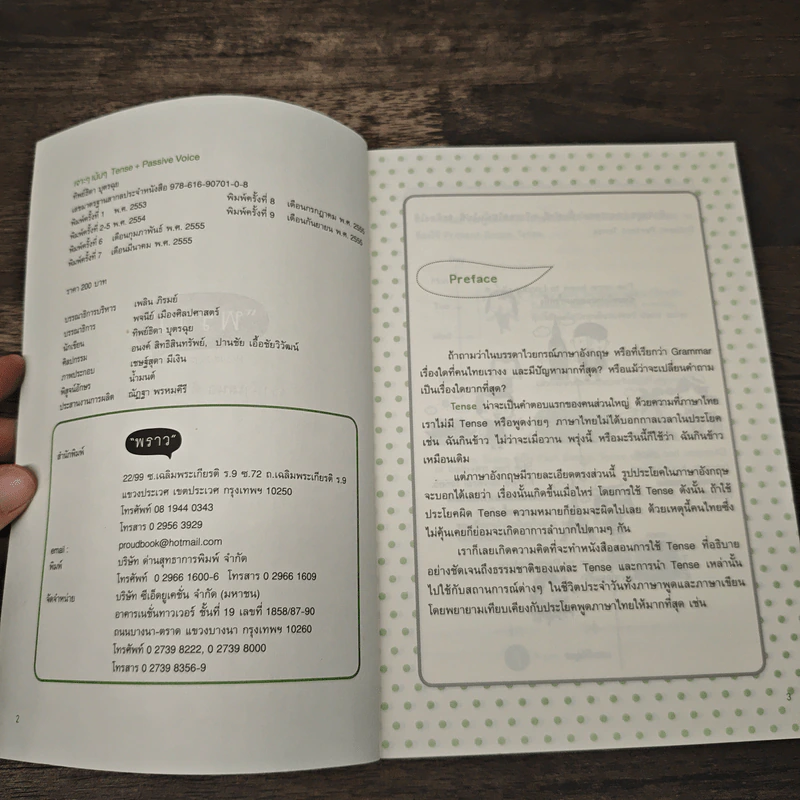 เจาะๆ เน้นๆ Tense + Passive Voice
ทิพย์ธิดา บุตรฉุย
เลขมาตรฐานสากลประจำหนังสือ 978-616-90701-0-8
พิมพ์ครั้งที่ 1 พ.ศ. 2553
พิมพ์ครั้งที่ 2-5 พ.ศ. 2554
พิมพ์ครั้งที่ 6 เดือนกุมภาพันธ์ พ.ศ. 2555
พิมพ์ครั้งที่ 7 เดือนมีนาคม พ.ศ. 2555
พิมพ์ครั้งที่ 8 เดือนกรกฎาคม พ.ศ. 2555
พิมพ์ครั้งที่ 9 เดือนกันยายน พ.ศ. 2555
ราคา 200 บาท
บรรณาธิการบริหาร เพลิน ภิรมย์
บรรณาธิการ พจนีย์ เมืองศิลปศาสตร์
นักเขียน ทิพย์ธิดา บุตรฉุย
ศิลปกรรม อนงค์ สิทธิสินทรัพย์, ปานชัย เอื้อชัยวิวัฒน์
ภาพประกอบ เชษฐ์สุดา มีเงิน
พิสูจน์อักษร น้ำมนต์
ประสานงานการผลิต ณัฏฐา พรหมคีรี
สำนักพิมพ์ "พราว"
22/99 ซ.เฉลิมพระเกียรติ ร.9 ซ.72 ถ.เฉลิมพระเกียรติ ร.9
แขวงประเวศ เขตประเวศ กรุงเทพฯ 10250
โทรศัพท์ 08 1944 0343
โทรสาร 0 2956 3929
email : proudbook@hotmail.com
พิมพ์ บริษัท ด่านสุทธาการพิมพ์ จำกัด
โทรศัพท์ 0 2966 1600-6 โทรสาร 0 2966 1609
จัดจำหน่าย บริษัท ซีเอ็ดยูเคชั่น จำกัด (มหาชน)
อาคารเนชั่นทาวเวอร์ ชั้นที่ 19 เลขที่ 1858/87-90
ถนนบางนา-ตราด แขวงบางนา กรุงเทพฯ 10260
โทรศัพท์ 0 2739 8222, 0 2739 8000
โทรสาร 0 2739 8356-9
2
Preface
ถ้าถามว่าในบรรดาไวยกรณ์ภาษาอังกฤษ หรือที่เรียกว่า Grammar
เรื่องใดที่คนไทยเรางง และมีปัญหามากที่สุด? หรือแม้ว่าจะเปลี่ยนคำถาม
เป็นเรื่องใดยากที่สุด?
Tense น่าจะเป็นคำตอบแรกของคนส่วนใหญ่ ด้วยความที่ภาษาไทย
เราไม่มี Tense หรือพูดง่ายๆ ภาษาไทยไม่ได้บอกกาลเวลาในประโยค
เช่น ฉันกินข้าว ไม่ว่าจะเมื่อวาน พรุ่งนี้ หรือมะรืนนี้ก็ใช้ว่า ฉันกินข้าว
เหมือนเดิม
แต่ภาษาอังกฤษมีรายละเอียดตรงส่วนนี้ รูปประโยคในภาษาอังกฤษ
จะบอกได้เลยว่า เรื่องนั้นเกิดขึ้นเมื่อไหร่ โดยการใช้ Tense ดังนั้น ถ้าใช้
ประโยคผิด Tense ความหมายก็ย่อมจะผิดไปเลย ด้วยเหตุนี้คนไทยซึ่ง
ไม่คุ้นเคยก็ย่อมจะเกิดอาการลำบากไปตามๆ กัน
เราก็เลยเกิดความคิดที่จะทำหนังสือสอนการใช้ Tense ที่อธิบาย
อย่างชัดเจนถึงธรรมชาติของแต่ละ Tense และการนำ Tense เหล่านั้น
ไปใช้กับสถานการณ์ต่างๆ ในชีวิตประจำวันทั้งภาษาพูดและภาษาเขียน
โดยพยายามเทียบเคียงกับประโยคพูดภาษาไทยให้มากที่สุด เช่น
3